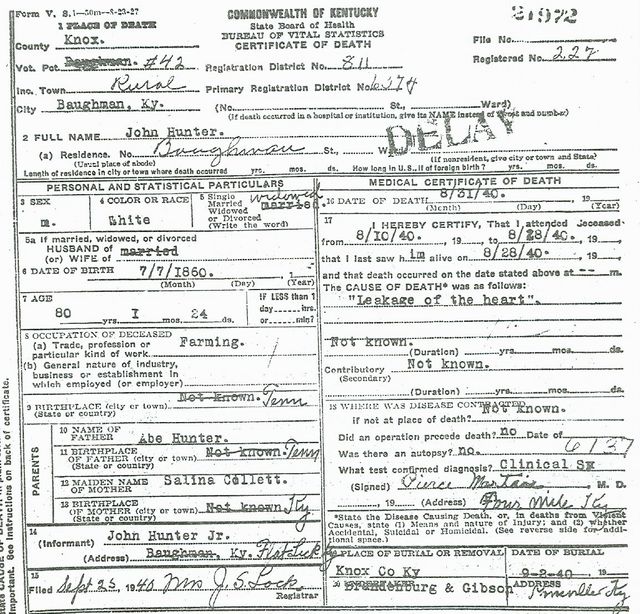 Form V. S. 1-50m-8-23-27
1 PLACE OF DEATH
COMMONWEALTH OF KENTUCKY
State Board of Health
BUREAU OF VITAL STATISTICS
CERTIFICATE OF DEATH
21972
County Knox.
File No.
Registered No. 227
Vot. Pct. Baughman. #42
Registration District No. 811
Inc. Town Rural
Primary Registration District No. 6374
City Baughman, Ky. (No. St., Ward)
(If death occurred in a hospital or institution, give its NAME instead of street and number)
DELAY
2 FULL NAME John Hunter.
(a) Residence. No. Baughman St., W
(Usual place of abode)
(If nonresident, give city or town and State)
Length of residence in city or town where death occurred yrs. mos. ds. How long in U. S., if of foreign birth? yrs. mos. ds.
PERSONAL AND STATISTICAL PARTICULARS
3 SEX
m.
4 COLOR OR RACE
White
5 Single
Married
Widowed
or Divorced
(Write the word)
Widowed
married
5a If married, widowed, or divorced
HUSBAND of
(or) WIFE of married
6 DATE OF BIRTH 7/7/1860. , 1
(Month) (Day) (Year)
7 AGE
80 yrs. 1 mos. 24 ds.
IF LESS than 1
day hrs.
or min?
8 OCCUPATION OF DECEASED
(a) Trade, profession or
particular kind of work Farming.
(b) General nature of industry,
business or establishment in
which employed (or employer)
9 BIRTHPLACE (city or town) Not known. Tenn
(State or country)
PARENTS
10 NAME OF
FATHER Abe Hunter.
11 BIRTHPLACE
OF FATHER (city or town) Not known. Tenn
(State or country)
12 MAIDEN NAME
OF MOTHER Salina Collett.
13 BIRTHPLACE
OF MOTHER (city or town) Not known Ky
(State or country)
14
(Informant) John Hunter Jr.
(Address) Baughman. Ky. Flat Lick Ky
15
Filed Sept 25 1940 Mrs J. S. Lock
Registrar
MEDICAL CERTIFICATE OF DEATH
16 DATE OF DEATH 8/31/40. , 19
(Month) (Day) (Year)
17
I HEREBY CERTIFY, That I attended deceased
from 8/10/40. , 19 to 8/28/40. , 19
that I last saw him alive on 8/28/40. , 19
and that death occurred on the date stated above at -- m.
The CAUSE OF DEATH* was as follows:
"Leakage of the heart".
Not known.
(Duration) yrs. mos. ds.
Contributory Not known.
(Secondary)
(Duration) yrs. mos. ds.
18 WHERE WAS DISEASE CONTRACTED
if not at place of death? Not known.
Did an operation precede death? no Date of
Was there an autopsy? no. 6137
What test confirmed diagnosis? Clinical
(Signed) Pierce M. D.
, 19 (Address) Four Mile Ky
*State the Disease Causing Death, or, in deaths from Violent
Causes, state (1) Means and nature of Injury; and (2) whether
Accidental, Suicidal or Homicidal. (See reverse side for addi-
tional space.)
19 PLACE OF BURIAL OR REMOVAL
Knox Co Ky
DATE OF BURIAL
9-2-40 19
20 UNDERTAKER
Brandenburg & Gibson
ADDRESS
Pineville Ky
Important. See instructions on back of certificate.